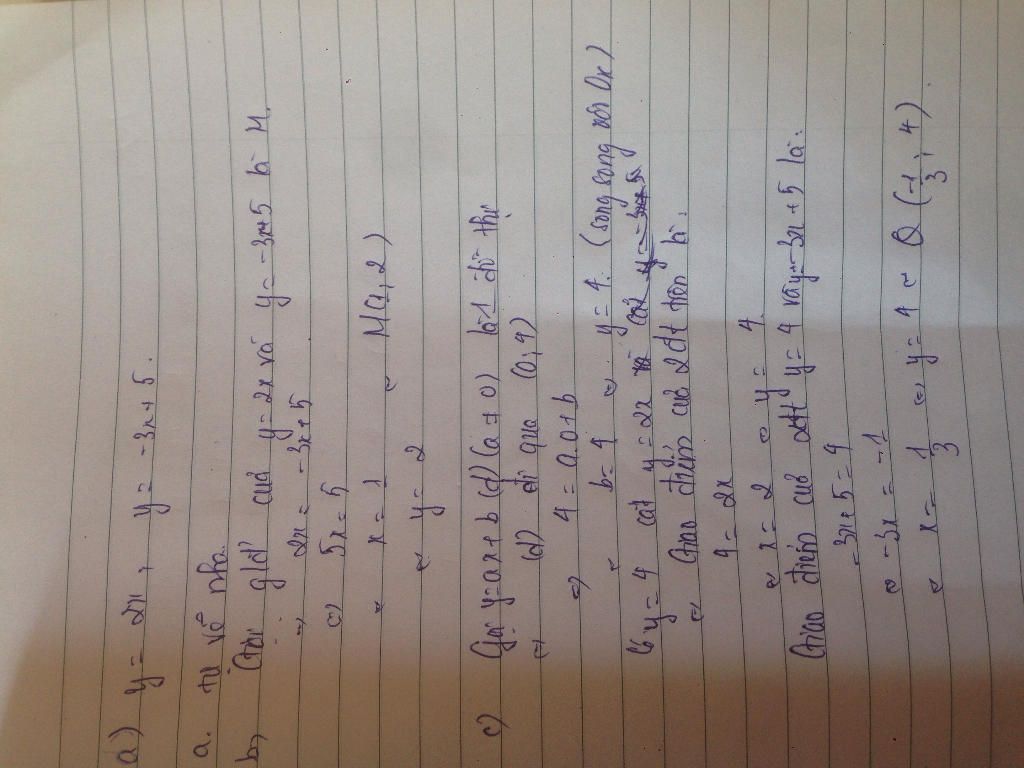 a) y = 2x , y = -3x + 5.
a. tự vẽ nha.
b, Gọi gđ' của y = 2x và y = -3x + 5 là M.
=> 2x = -3x + 5
<=> 5x = 5
<=> x = 1 <=> M(1, 2)
<=> y = 2
c) Gọi y = ax + b (d) (a ≠ 0) là 1 đt thị
=> (d) đi qua (0; 4)
=> 4 = a.0 + b
<=> b = 4 <=> y = 4. (song song với Ox)
y = 4 cắt y = 2x
<=> Giao điểm của 2 đt trên là:
4 = 2x
<=> x = 2 <=> y = 4.
Giao điểm của đt y = 4 và y = -3x + 5 là:
-3x + 5 = 4
<=> -3x = -1
<=> x = 1/3 <=> y = 4 <=> Q (1/3 ; 4).